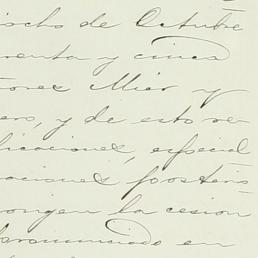 iocho de Octubre
renta y cinco
ores Mier y
ero, y de esto re
licaciones, especial
aciones posterio
rongen la cesion
pronunciado en